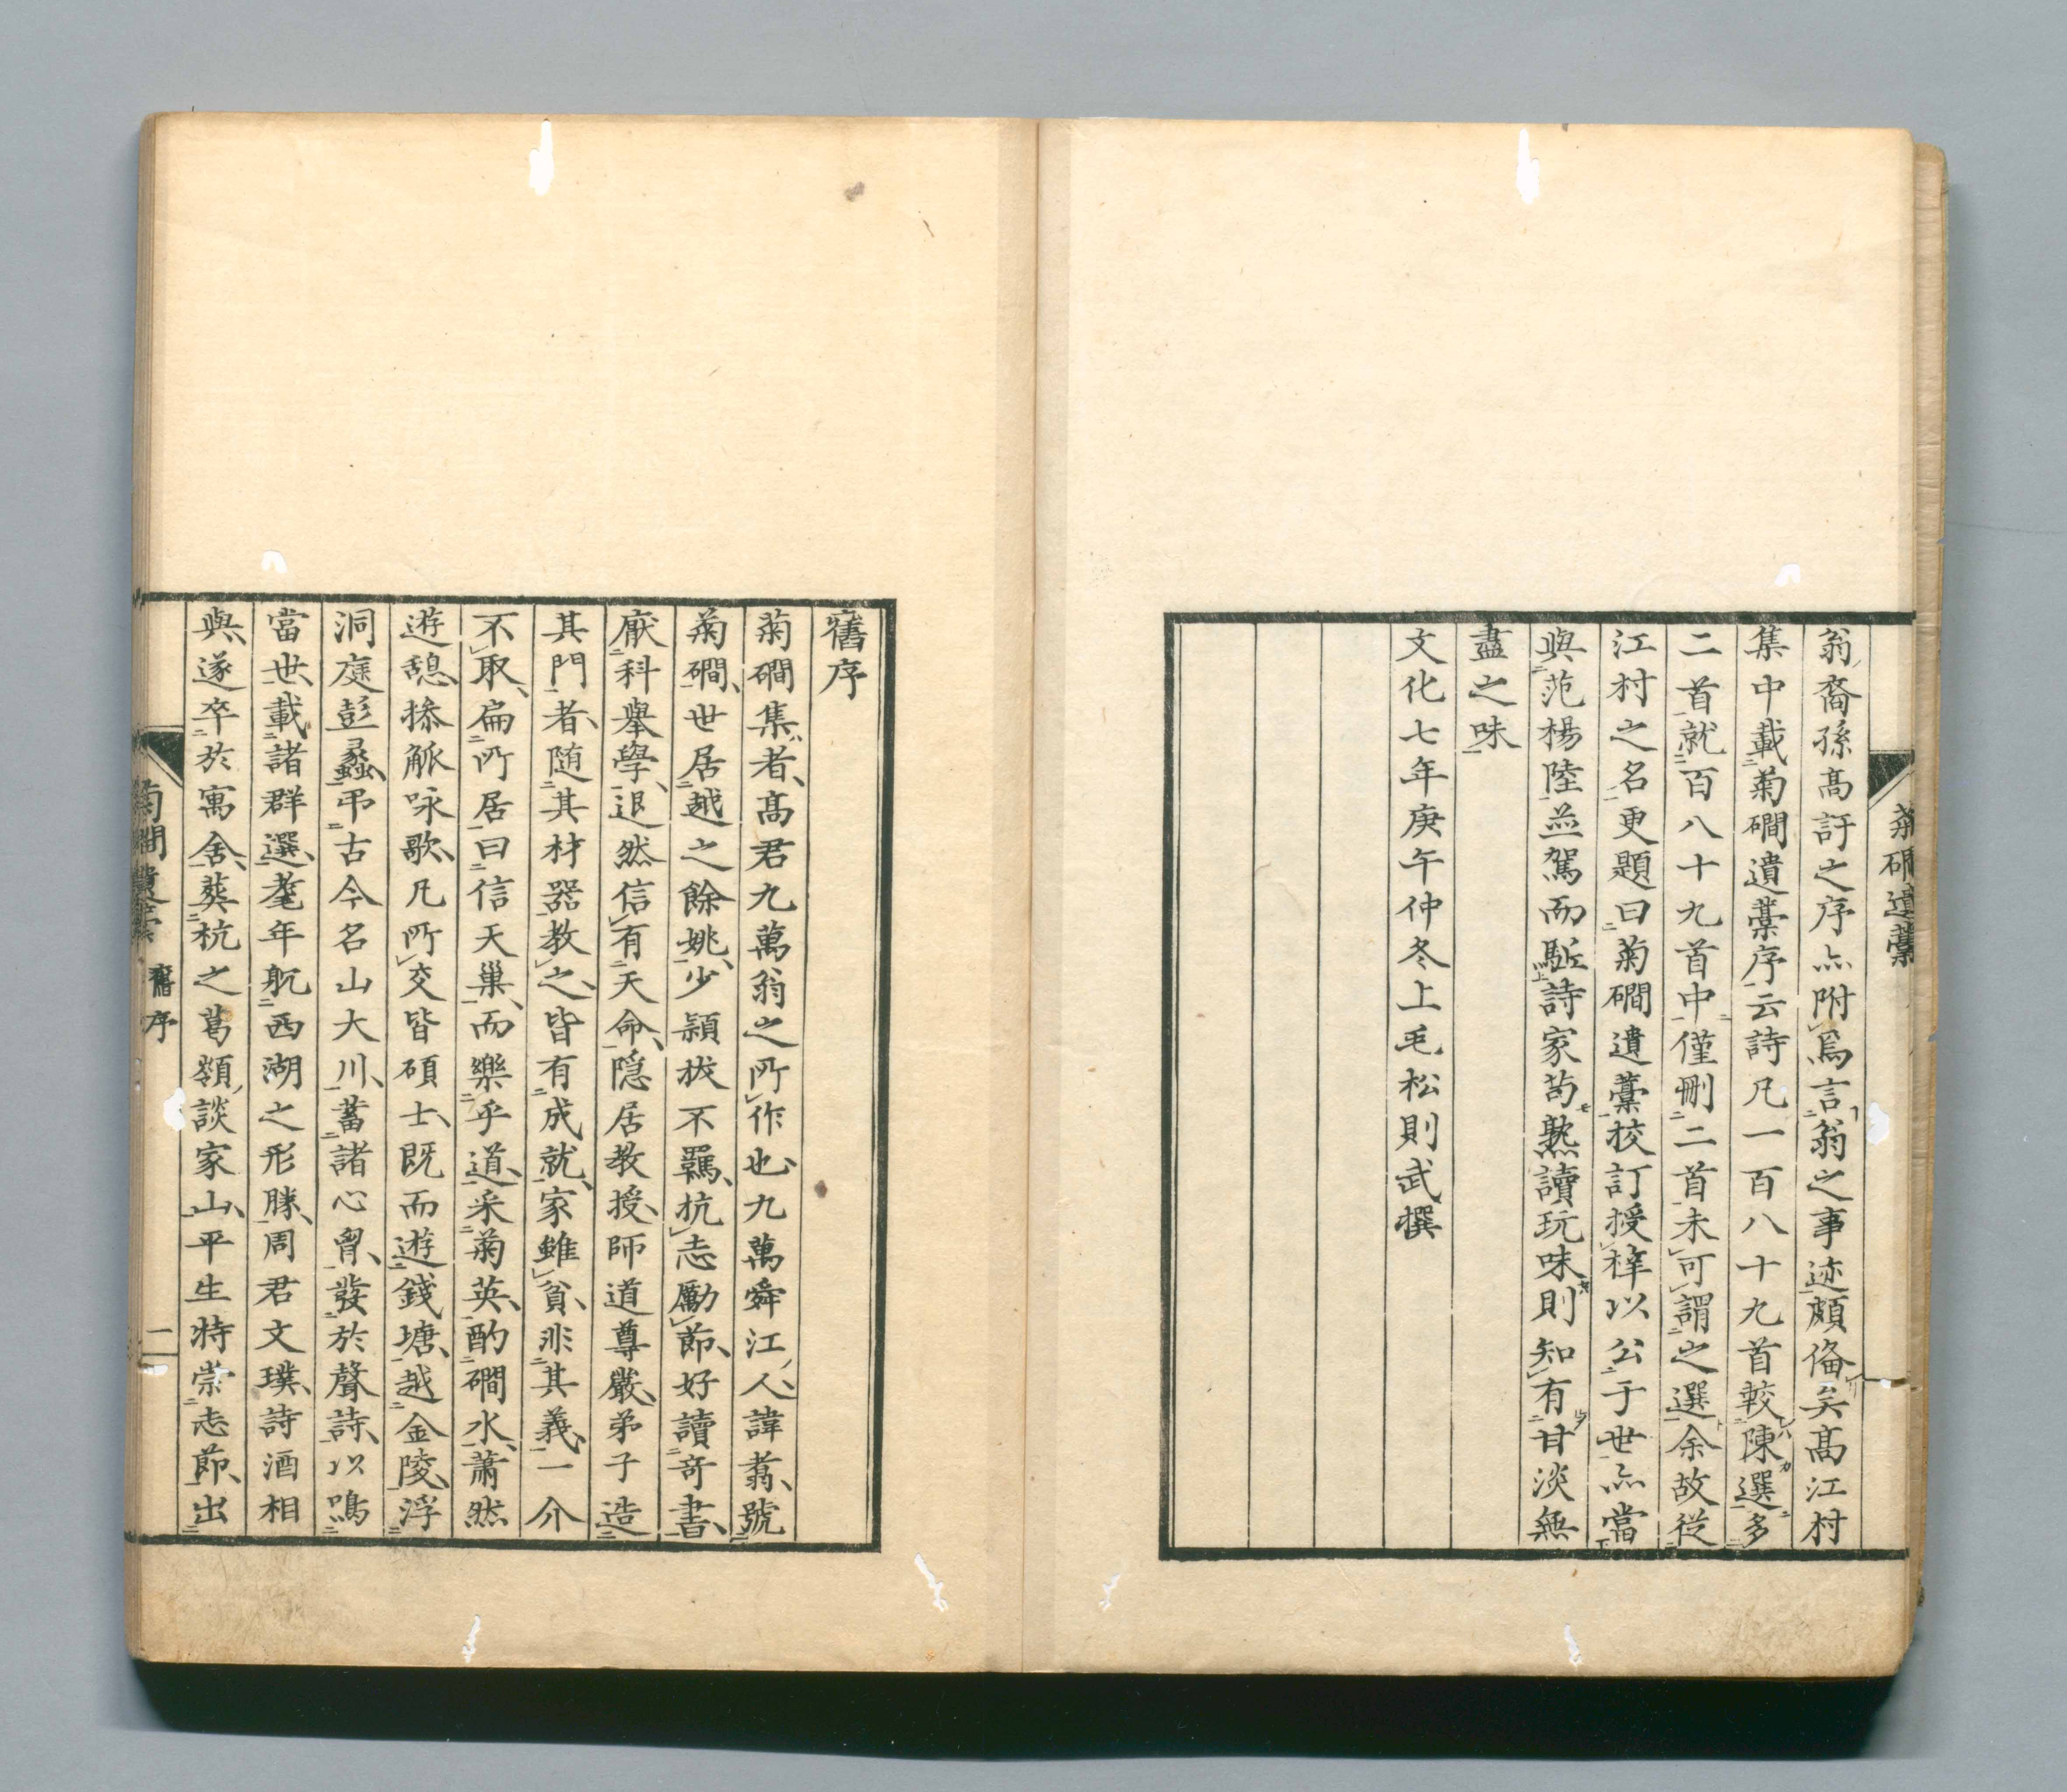 菊磵遺藁
翁裔孫高訏之序亦附焉言翁之事迹頗俻矣高江村
集中載菊磵遺藁序云詩凡一百八十九首較陳選多
二首就百八十九首中僅刪二首未可謂之選余故從
江村之名更題曰菊磵遺藁校訂授梓以公于世亦當
與范楊陸並駕而駈詩家苟熟讀玩味則知有甘淡無
盡之味
文化七年庚午仲冬上毛松則武撰
舊序
菊磵集者高君九萬翁之所作也九萬舜江人諱翥號
菊磵世居越之餘姚少穎拔不羈抗志勵節好讀奇書
厭科舉學退然信有天命隠居教授師道尊嚴弟子造
其門者随其材器教之皆有成就家雖貧非其義一介
不取扁所居曰信天巢而樂乎道采菊英酌磵水蕭然
遊憩摻觚咏歌凡所交皆碩士既而遊錢塘越金陵浮
洞庭彭蠡弔古今名山大川蓄諸心胷發於聲詩以鳴
當世載諸群選耄年躭西湖之形勝周君文璞詩酒相
與遂卒於寓舍葬杭之葛嶺談家山平生特崇志節出
菊磵遺藁 舊序 一